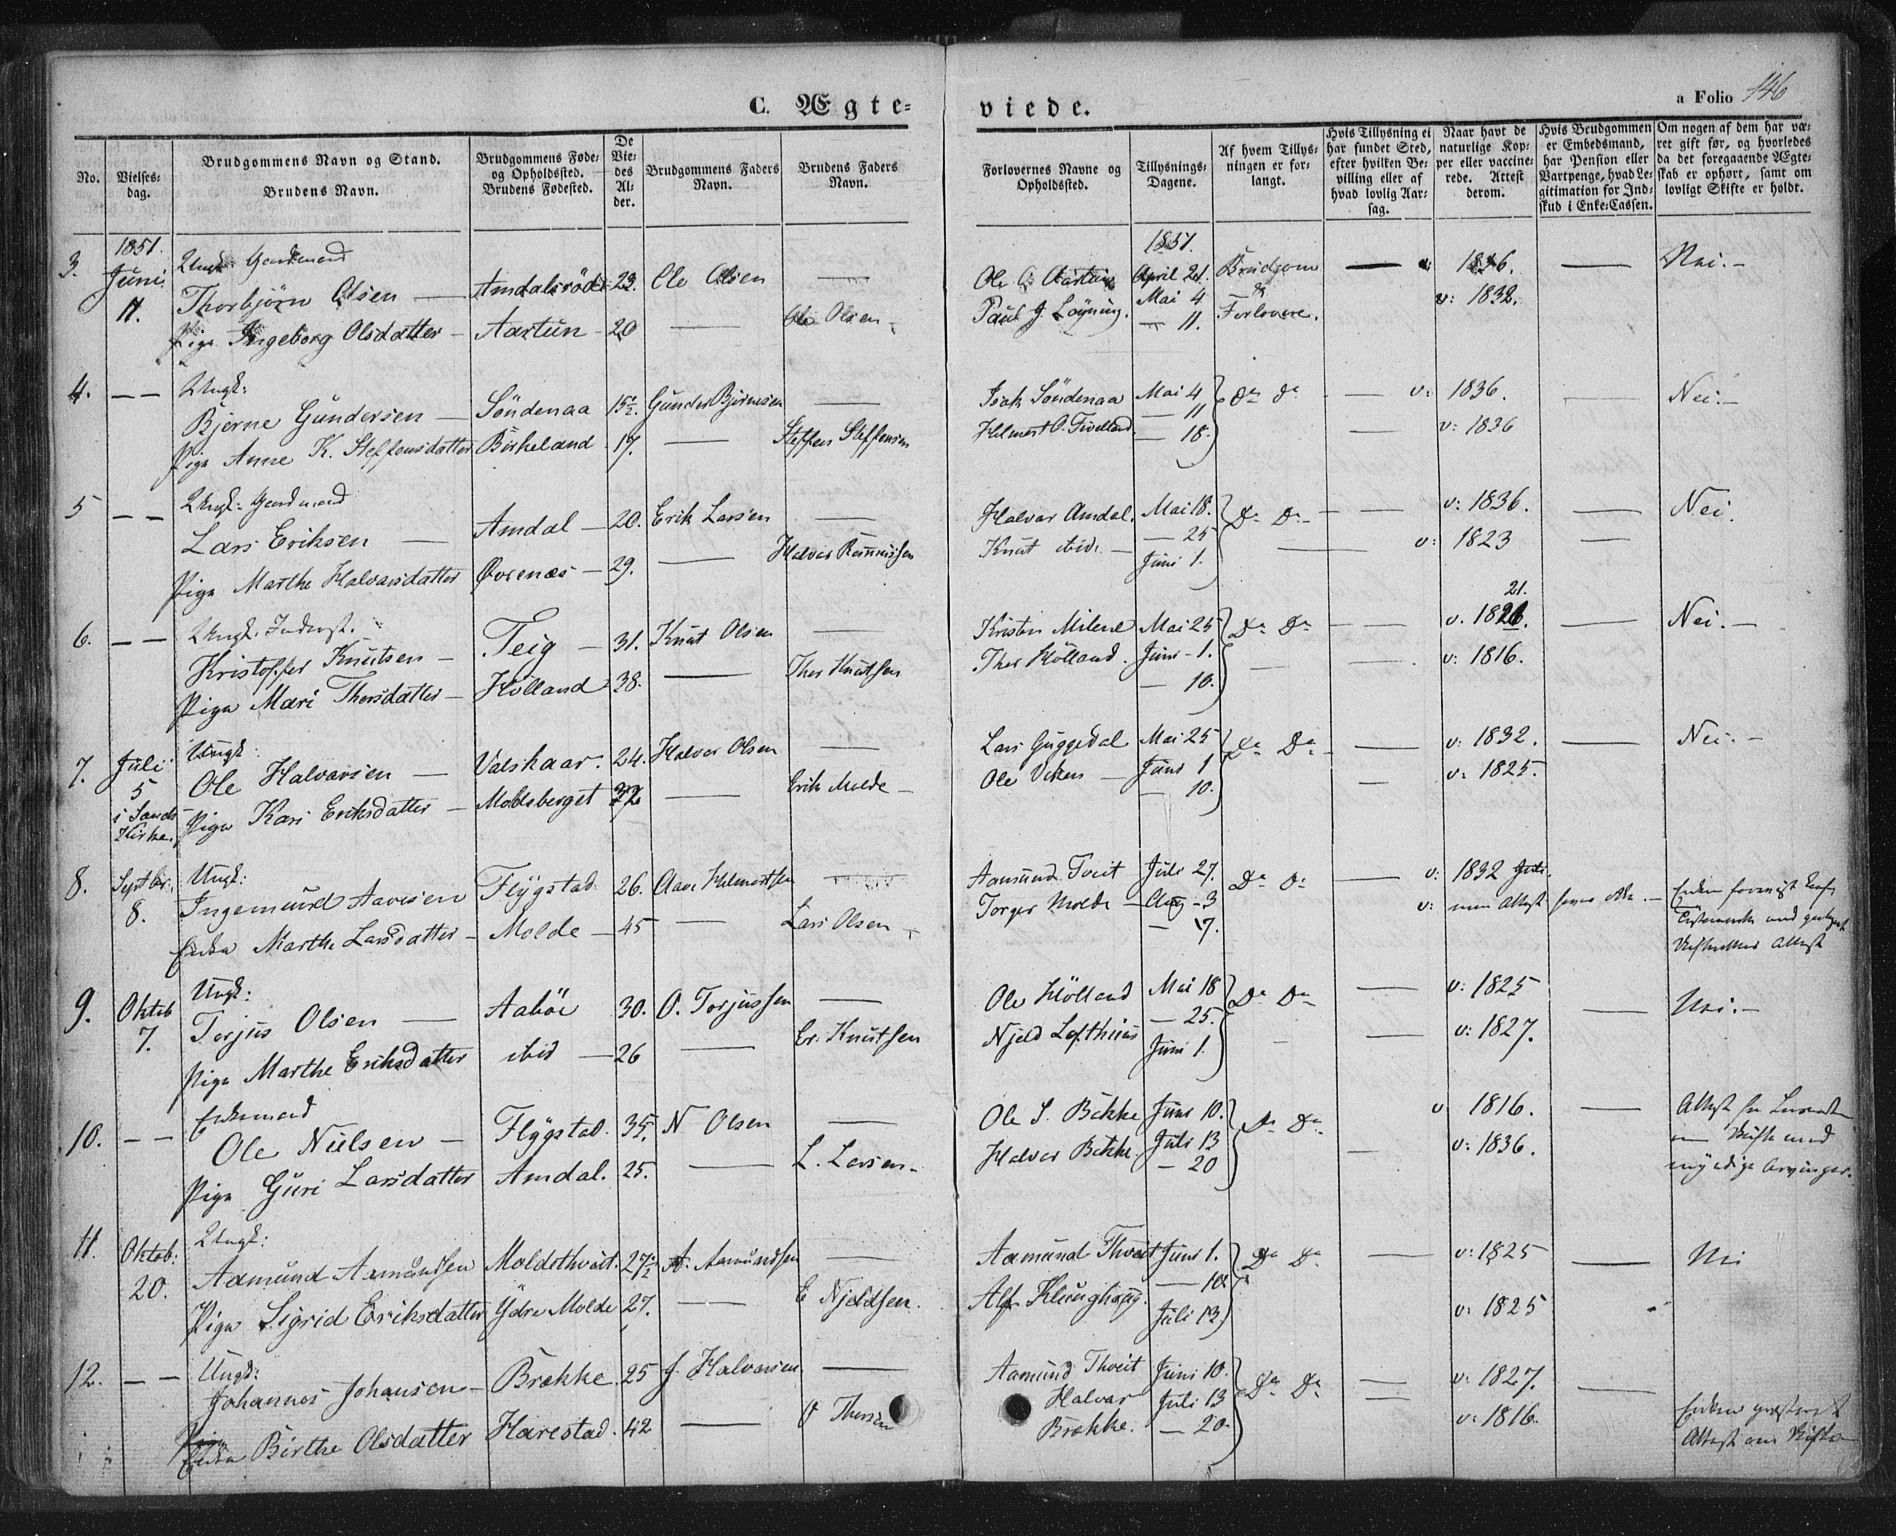 C. Ægte=
viede.
a Folio 146
No.
Vielses-dag.
Brudgommens Navn og Stand.
Brudens Navn.
Brudgommens Føde- og Opholdssted. Brudens Fødested.
De Vie-des Al-der.
Brudgommens Faders Navn.
Brudens Faders Navn.
Forlovernes Navne og Opholdssted.
Tillysnings-Dagene.
Af hvem Tillys-ningen er for-langt.
Hvis Tillysning ei har fundet Sted, efter hvilken Be-villing eller af hvad lovlig Aar-sag.
Naar havt de naturlige Kop-per eller vaccine-rede. Attest derom.
Hvis Brudgommen er Embedsmand, har Pension eller Vartpenge, hvad Le-gitimation for Ind-skud i Enke-Cassen.
Om nogen af dem har væ-ret gift før, og hvorledes da det foregaaende Ægte-skab er ophørt, samt om lovligt Skifte er holdt.
3. 1851. Juni 11.
Ungk: Gaardmand
Thorbjörn Olsen — 23. Ole Olsen —
Pige Ingeborg Olsdatter — Aartun — 20 — Ole Olsen
1851.
April 21. Brudgom 1836. — Nei. —
Paul J Løyning. Mai 4 & v: 1832.
— 11. Forlovere.
4. — — Ungk:
Bjerne Gundersen — Söndenaa 15½. Gunder Bjernesen —
Pige Anne K. Steffensdatter Birkeland 17. — Steffen Steffensen
Isak Söndenaa Mai 4 Do do — v: 1836. — Nei. —
— 11
— 18. — v: 1836
5 — — Ungk: Gaardmand
Lars Eriksen — Amdal — 20. Erik Larsen —
Pige Marthe Halvarsdatter Øvrenæs — 29. — Halvor
Halvor Amdal. Mai 18. Do Do — v: 1836. — Nei.
Knut ibid. — 25 — v: 1823
Juni 1.
6. — — Ungk. Inderst.
Kristoffer Knutsen — Teig — 31. Knut Olsen —
Pige Mari Thorsdatter — Hölland 38. — Thor Knutsen
Kristen Milene Mai 25 Do Do — v. 1821. — Nei. —
Thor Hölland. Juni 1. — v: 1816.
— 10.
7. Juli 5 i Sands Kirke.
Ungk:
Ole Halvarsen — Valskaar. 24. Halvor Olsen —
Pige Kari Eriksdatter — Moldsberget — Erik Molde —
Lars Guggedal Mai 25 Do Do — v: 1832. — Nei. —
Ole Viken — Juni 1 — v: 1825.
— 10.
8. Septbr. 8.
Ungk:
Ingemund Aavesen Flÿgstad 26. Aave Helmertsen —
Enke Marthe Larsdatter — Molde — 45 — Lars Olsen
Aamund Tveit Juli 27. Do Do — v: 1832
Torger Molde — Aug — 3 v: men Attest haves ikke. —
— 17.
9. Oktob 7.
Ungk:
Torjus Olsen — Aaböe 30. O. Torjussen —
Pige Marthe Eriksdatter ibid — 26 — Er. Knutsen
Ole Hölland Mai 18 Do Do — v: 1825 — Nei. —
Njeld Lofthuus — 25. — v: 1827.
Juni 1.
10. — — Enkemand
Ole Nielsen — Flÿgstad. 35. N Olsen —
Pige Guri Larsdatter Amdal. 25. — L. Larsen
Ole S. Bække Juni 10. Do Do v 1816. —
Halvor Bække. Juli 13 — v: 1836.
— 20
11. Oktob: 20.
Ungk:
Aamund Aamundsen Moldethveit. 27½ A. Aamundsen —
Pige Sigrid Eriksdatter Ydre Molde 27. — E Njeldsen.
Aamund Thveit Juni 1. Do Do — v: 1825 — Nei
Alf Klunghaug. — 10.
Juli 13. v: 1825
12. — — Ungk:
Johannes Johansen — Brække. 25 J. Halvorsen —
Enke Birthe Olsdatter Harestad. 42 — O Thorsen
Aamund Thveit Juni 10. Do Do — v: 1827. —
Halvar Juli 13 v: 1816.
Brække. — 20.